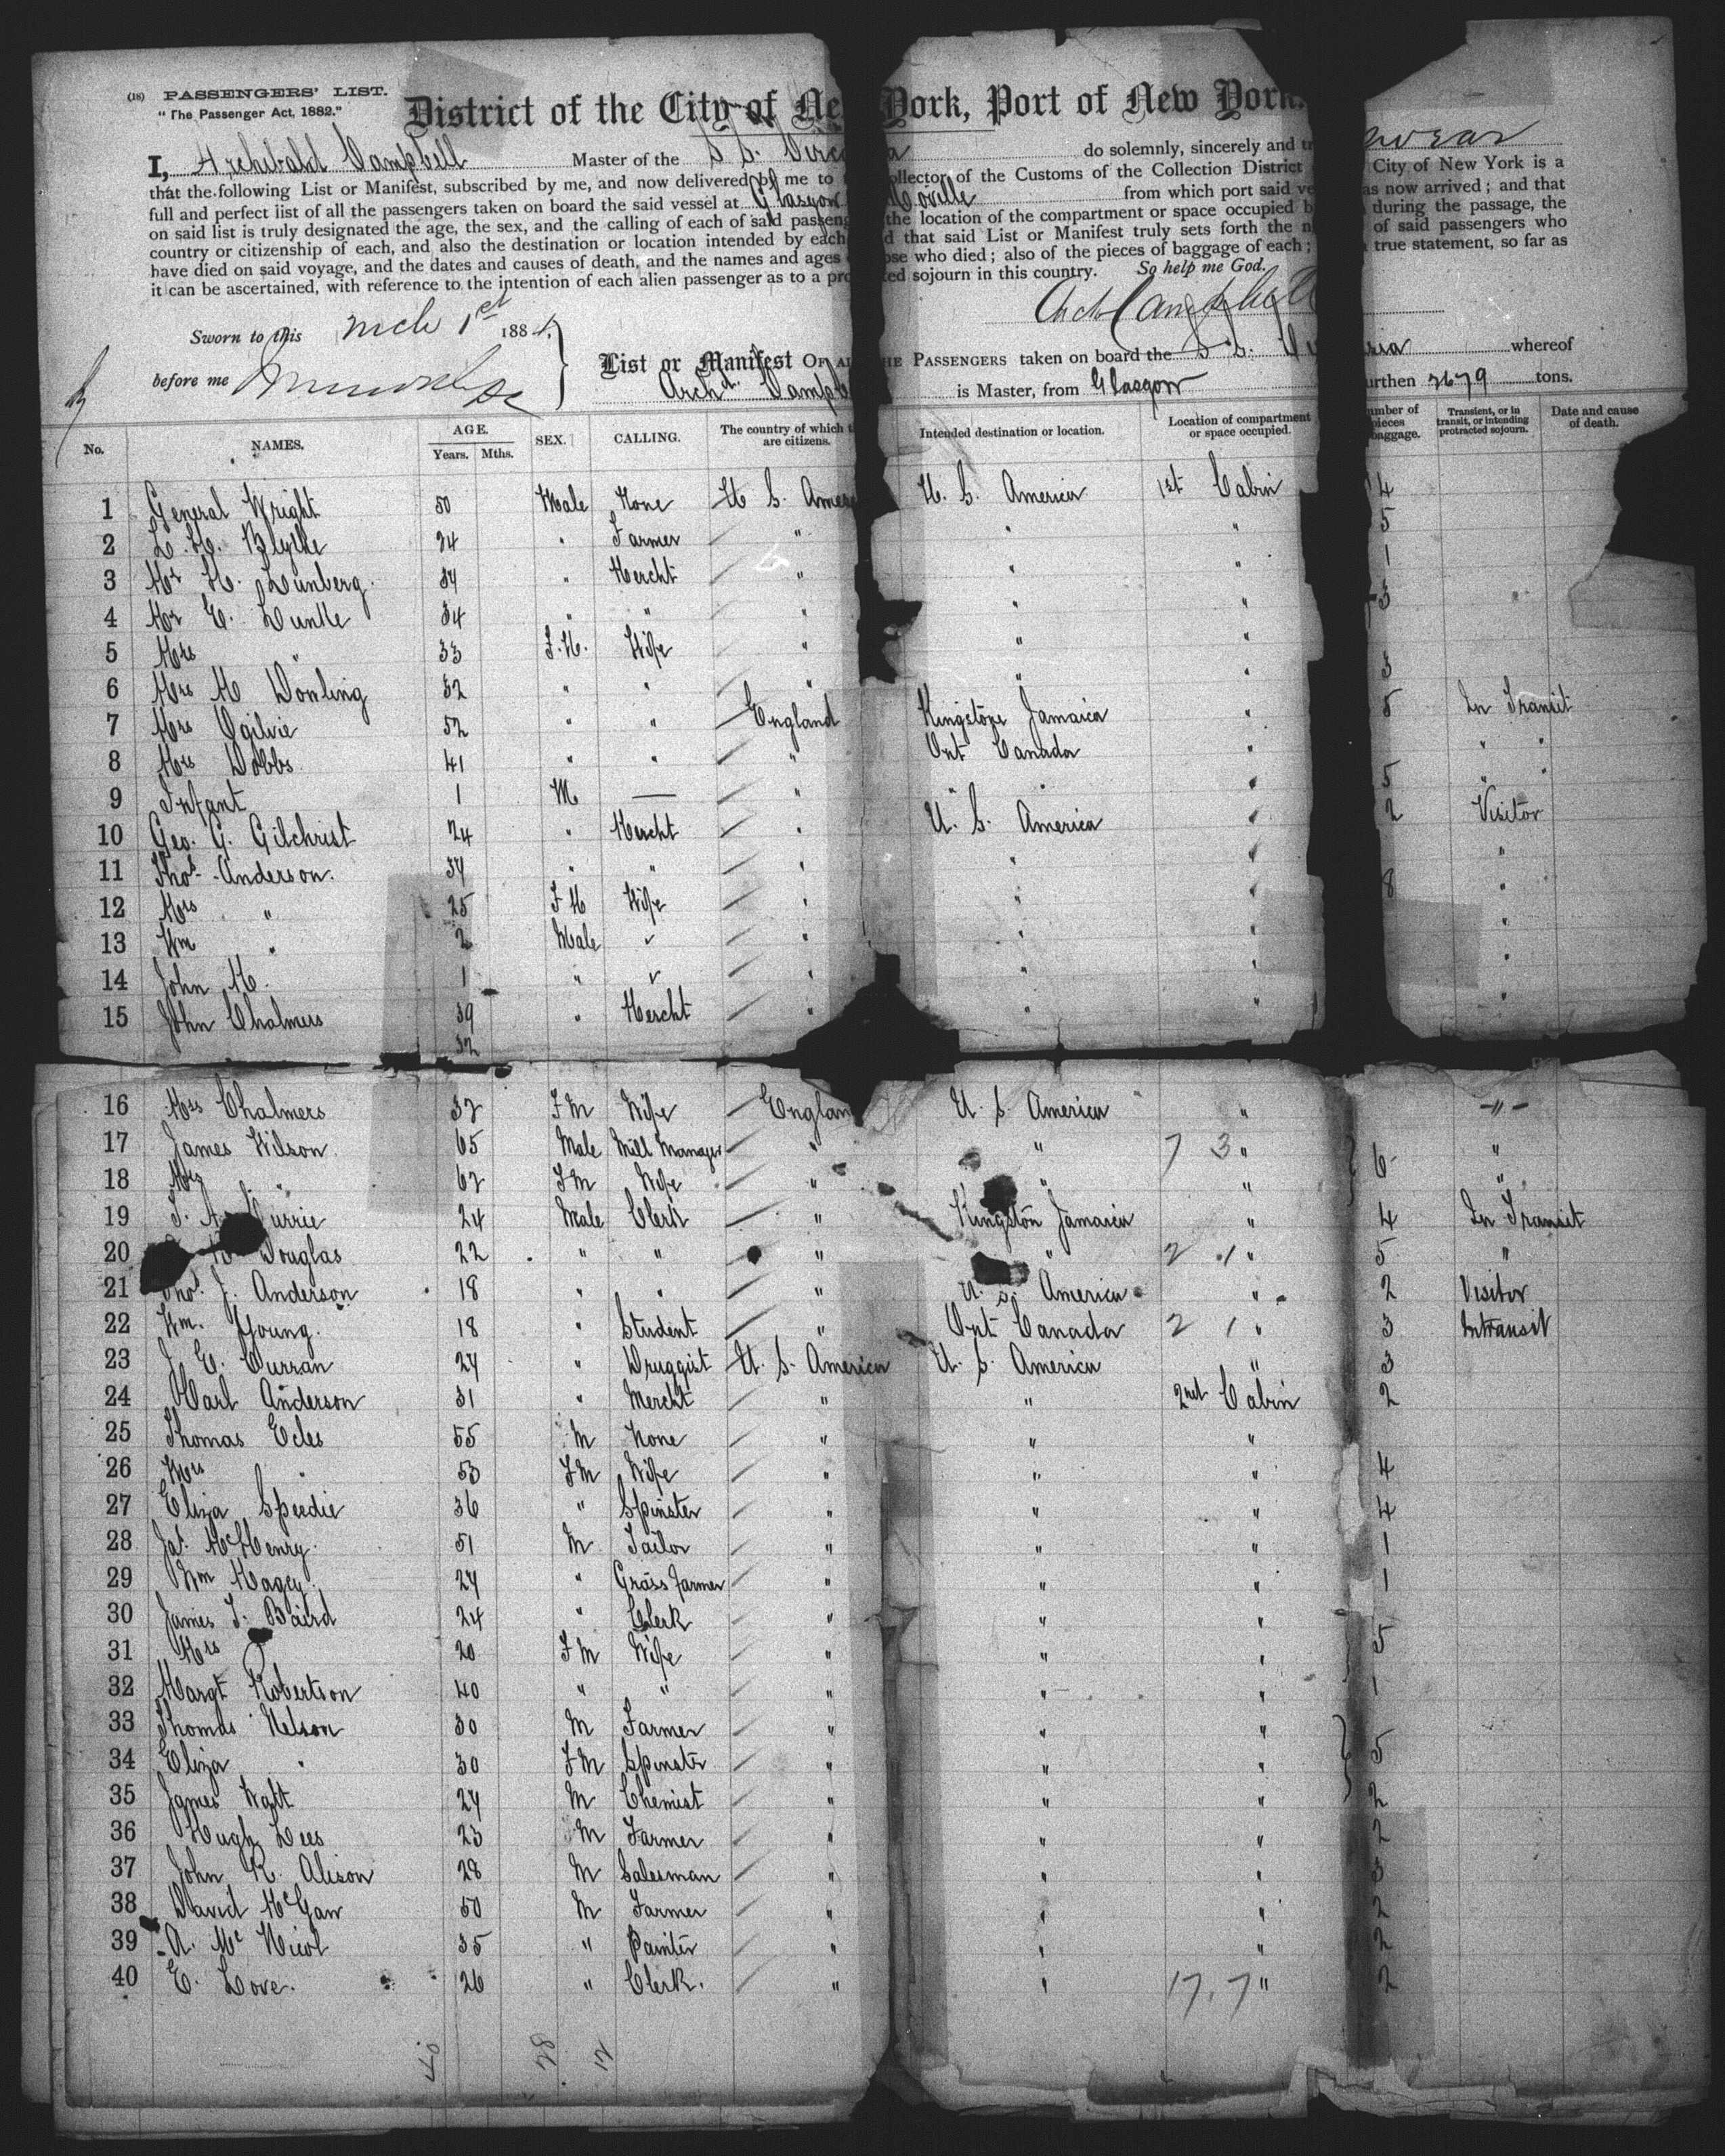 (18) PASSENGERS' LIST.
"The Passenger Act, 1882."
District of the City of Ne York, Port of New York.
I, Archibald Campbell Master of the S S. do solemnly, sincerely and tr
that the following List or Manifest, subscribed by me, and now delivered by me to ollector of the Customs of the Collection District City of New York is a
full and perfect list of all the passengers taken on board the said vessel at Glasgow Moville from which port said ve as now arrived; and that
on said list is truly designated the age, the sex, and the calling of each of said passeng the location of the compartment or space occupied b during the passage, the
country or citizenship of each, and also the destination or location intended by each d that said List or Manifest truly sets forth the n of said passengers who
have died on said voyage, and the dates and causes of death, and the names and ages ose who died; also of the pieces of baggage of each; true statement, so far as
it can be ascertained, with reference to the intention of each alien passenger as to a pro ed sojourn in this country. So help me God.
Arch Campbell
Sworn to this Mch 1st 1884,
before me
List or Manifest OF AL HE PASSENGERS taken on board the S. S. ria whereof
Archd. Campb is Master, from Glasgow urthen 2679 tons.
No. NAMES. AGE. Years. Mths. SEX. CALLING. The country of which t are citizens. Intended destination or location. Location of compartment or space occupied. umber of pieces baggage. Transient, or in transit, or intending protracted sojourn. Date and cause of death.
1 General Wright 50 Male None U S. Amer U. S. America 1st Cabin 4
2 L. H. Blythe 24 " Farmer " " " 5
3 Mr H. Lunberg. 34 " Mercht " " " 1
4 Mr E. Luntle 34 " " " " " 3
5 Mrs " 33 F.M. Wife " " "
6 Mrs M Dowling 32 " " " " " 3
7 Mrs Ogilvie 52 " " England Kingston Jamaica " 8 In Transit
8 Mrs Dobbs 41 " " " Ont Canada " " "
9 Infant 1 M — " " " " 5 " "
10 Geo. G. Gilchrist 24 " Mercht " U. S. America " 2 Visitor
11 Thos. Anderson. 34 " " " " " "
12 Mrs " 25 F M Wife " " " 8 "
13 Wm " 2 Male " " " "
14 John M. 1 " " " " "
15 John Chalmers 39 " Mercht " " " "
32
16 Mrs Chalmers 32 F M Wife Englan U. S. America " -"-
17 James Wilson. 65 Male Mill Manager " " 7 3 " 6 "
18 Mrs " 62 F M Wife " " " "
19 urrie 24 Male Clerk " Kingston Jamaica " 4 In Transit
20 Douglas 22 " " " " 2 1 " 5 "
21 Thos. J. Anderson 18 " " " U. S. America " 2 Visitor
22 Wm. Young. 18 " Student " Ont Canada 2 1 " 3 Intransit
23 J E. Curran 24 " Druggist U. S. America U. S. America " 3
24 Carl Anderson 31 " Mercht " " 2nd Cabin 2
25 Thomas Ecles 55 M None " " "
26 Mrs " 53 F M Wife " " " 4
27 Eliza Speedie 36 " Spinster " " " 4
28 Jas. McHenry. 51 M Tailor " " " 1
29 Wm 24 " Grass Farmer " " " 1
30 James T. Baird 24 " Clerk " " "
31 Mrs 20 F M Wife " " " 5
32 Margt Robertson 40 " " " " " 1
33 Thomas Nelson 30 M Farmer " " "
34 Eliza " 30 F M Spinster " " " 5
35 James Watt 24 M Chemist " " " 2
36 Hugh Lees 23 M Farmer " " " 2
37 John R. Alison 28 M Salesman " " " 3
38 David McGaw 50 M Farmer " " " 2
39 A. Mc Nicol 35 " Painter " " " 2
40 E. Love. 26 " Clerk. " " 17. 7 " 2
40 28 12